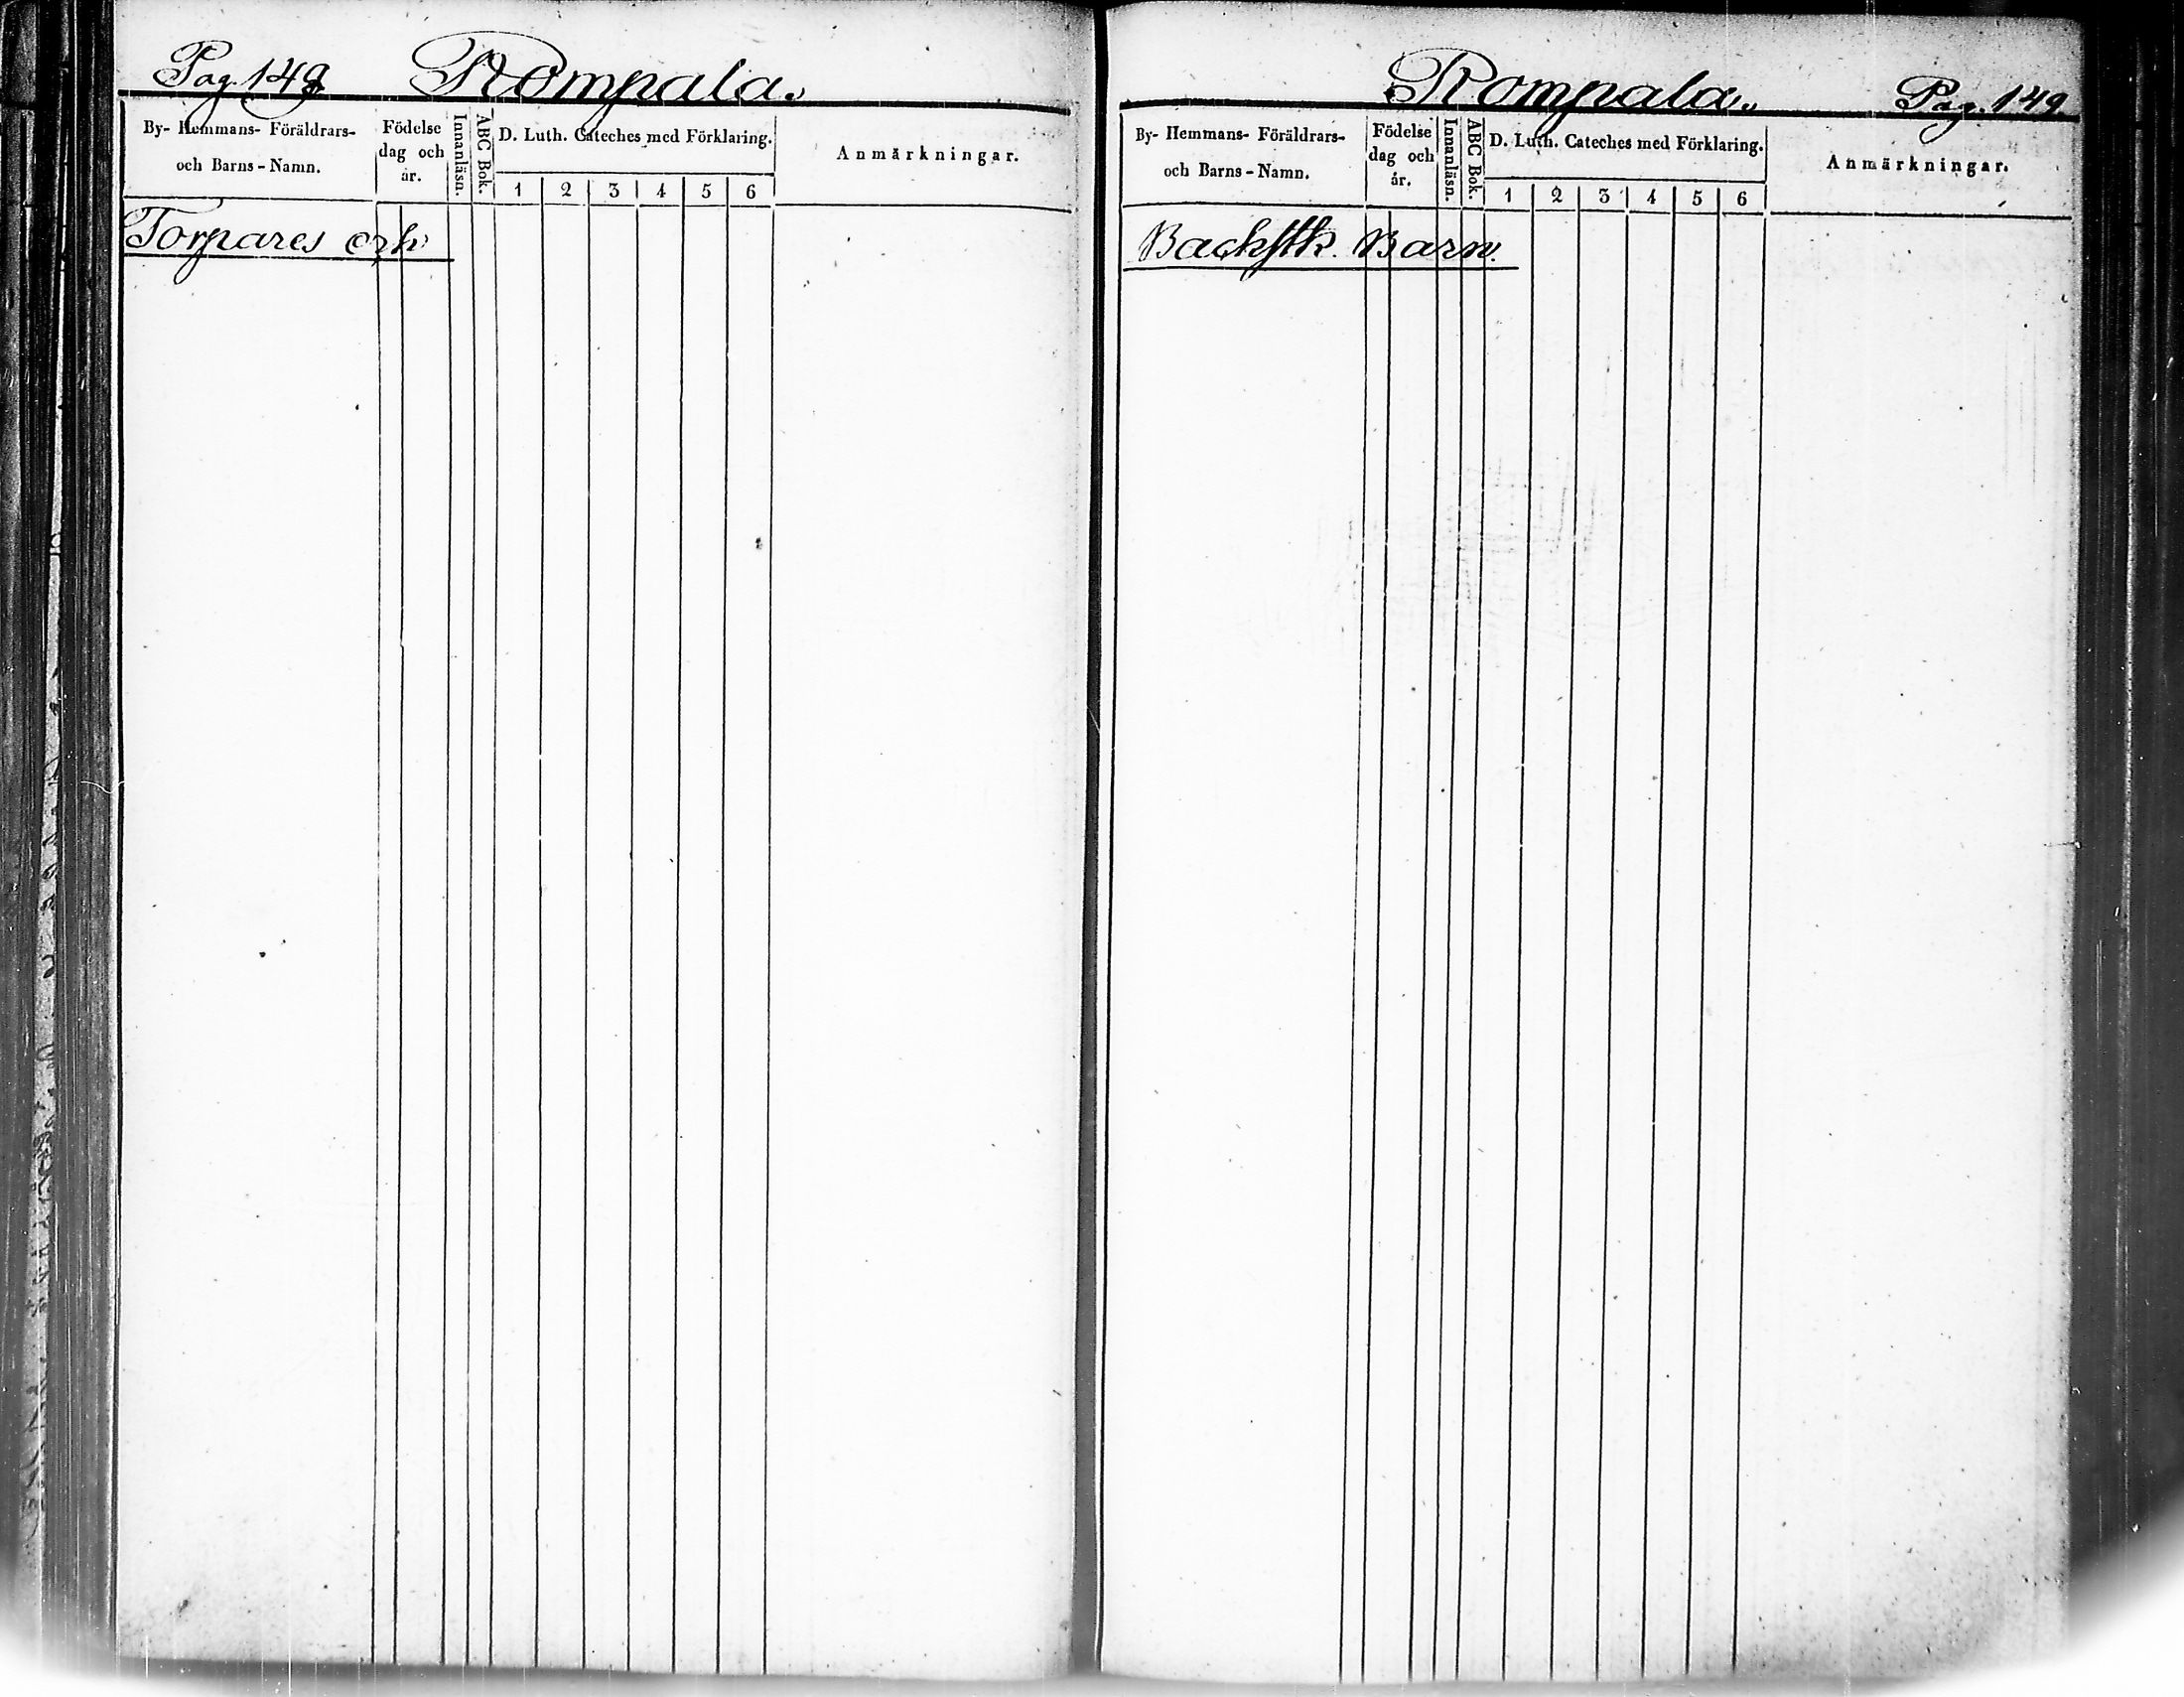 Pag. 149 Rompala.
By- Hemmans- Föräldrars- och Barns-Namn.
Födelse dag och år.
Innanläsn.
ABC Bok.
D. Luth. Cateches med Förklaring.
1 2 3 4 5 6
Anmärkningar.
Torpares och
Rompala. Pag. 149.
By- Hemmans- Föräldrars- och Barns-Namn.
Födelse dag och år.
Innanläsn.
ABC Bok.
D. Luth. Cateches med Förklaring.
1 2 3 4 5 6
Anmärkningar.
Backstk. Barn.